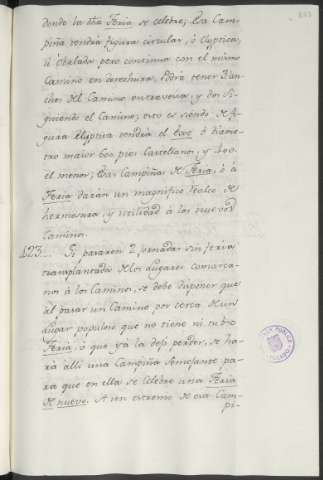 donde la dha Feria se celebre; esta Cam-
piña tendrá figura circular, ó elyptica,
ú obalada pero continua con el mismo
Camino en derechura, podrá tener
del Camino en travesia, y dos si-
guiendo el Camino; esto es siendo de fi-
gura elyptica tendrá el exe, ó diáme-
tro maior 600 pies Castellanos, y 400
el menor; estas Campiñas de Feria, ó á
Feria darán un magnifico realce de
hermosura, y utilidad á los nuevos
Caminos.
123... Si pararen 2 jornadas sin feria
transplantada de los Lugares comarca-
nos á los Caminos, se debe disponer que
al pasar un Camino por cerca de un
Lugar populoso que no tiene ni tubo
Feria, ó que yá la dejó perder, se ha-
rá alli una Campiña semejante pa-
ra que en ella se celebre una Feria
de nuevo. A un extremo de esta Cam-
pi-